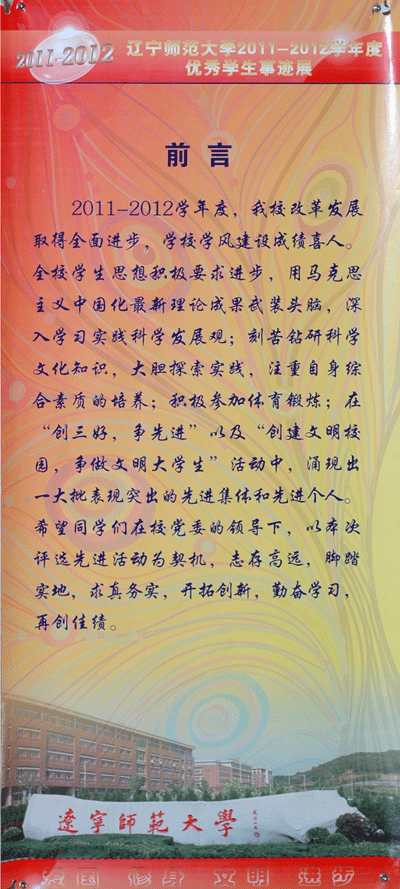 2011-2012
辽宁师范大学2011-2012学年度
优秀学生事迹展
前言
2011-2012学年度,我校改革发展
取得全面进步,学校学风建设成绩喜人。
全校学生思想积极要求进步,用马克思
主义中国化最新理论成果武装头脑,深
入学习实践科学发展观;刻苦钻研科学
文化知识,大胆探索实践,注重自身综
合素质的培养;积极参加体育锻炼;在
“创三好,争先进”以及“创建文明校
园,争做文明大学生”活动中,涌现出
一大批表现突出的先进集体和先进个人。
希望同学们在校党委的领导下,以本次
评选先进活动为契机,志存高远,脚踏
实地,求真务实,开拓创新,勤奋学习,
再创佳绩。
遼寧師範大學
爱国 修身 文明 进步